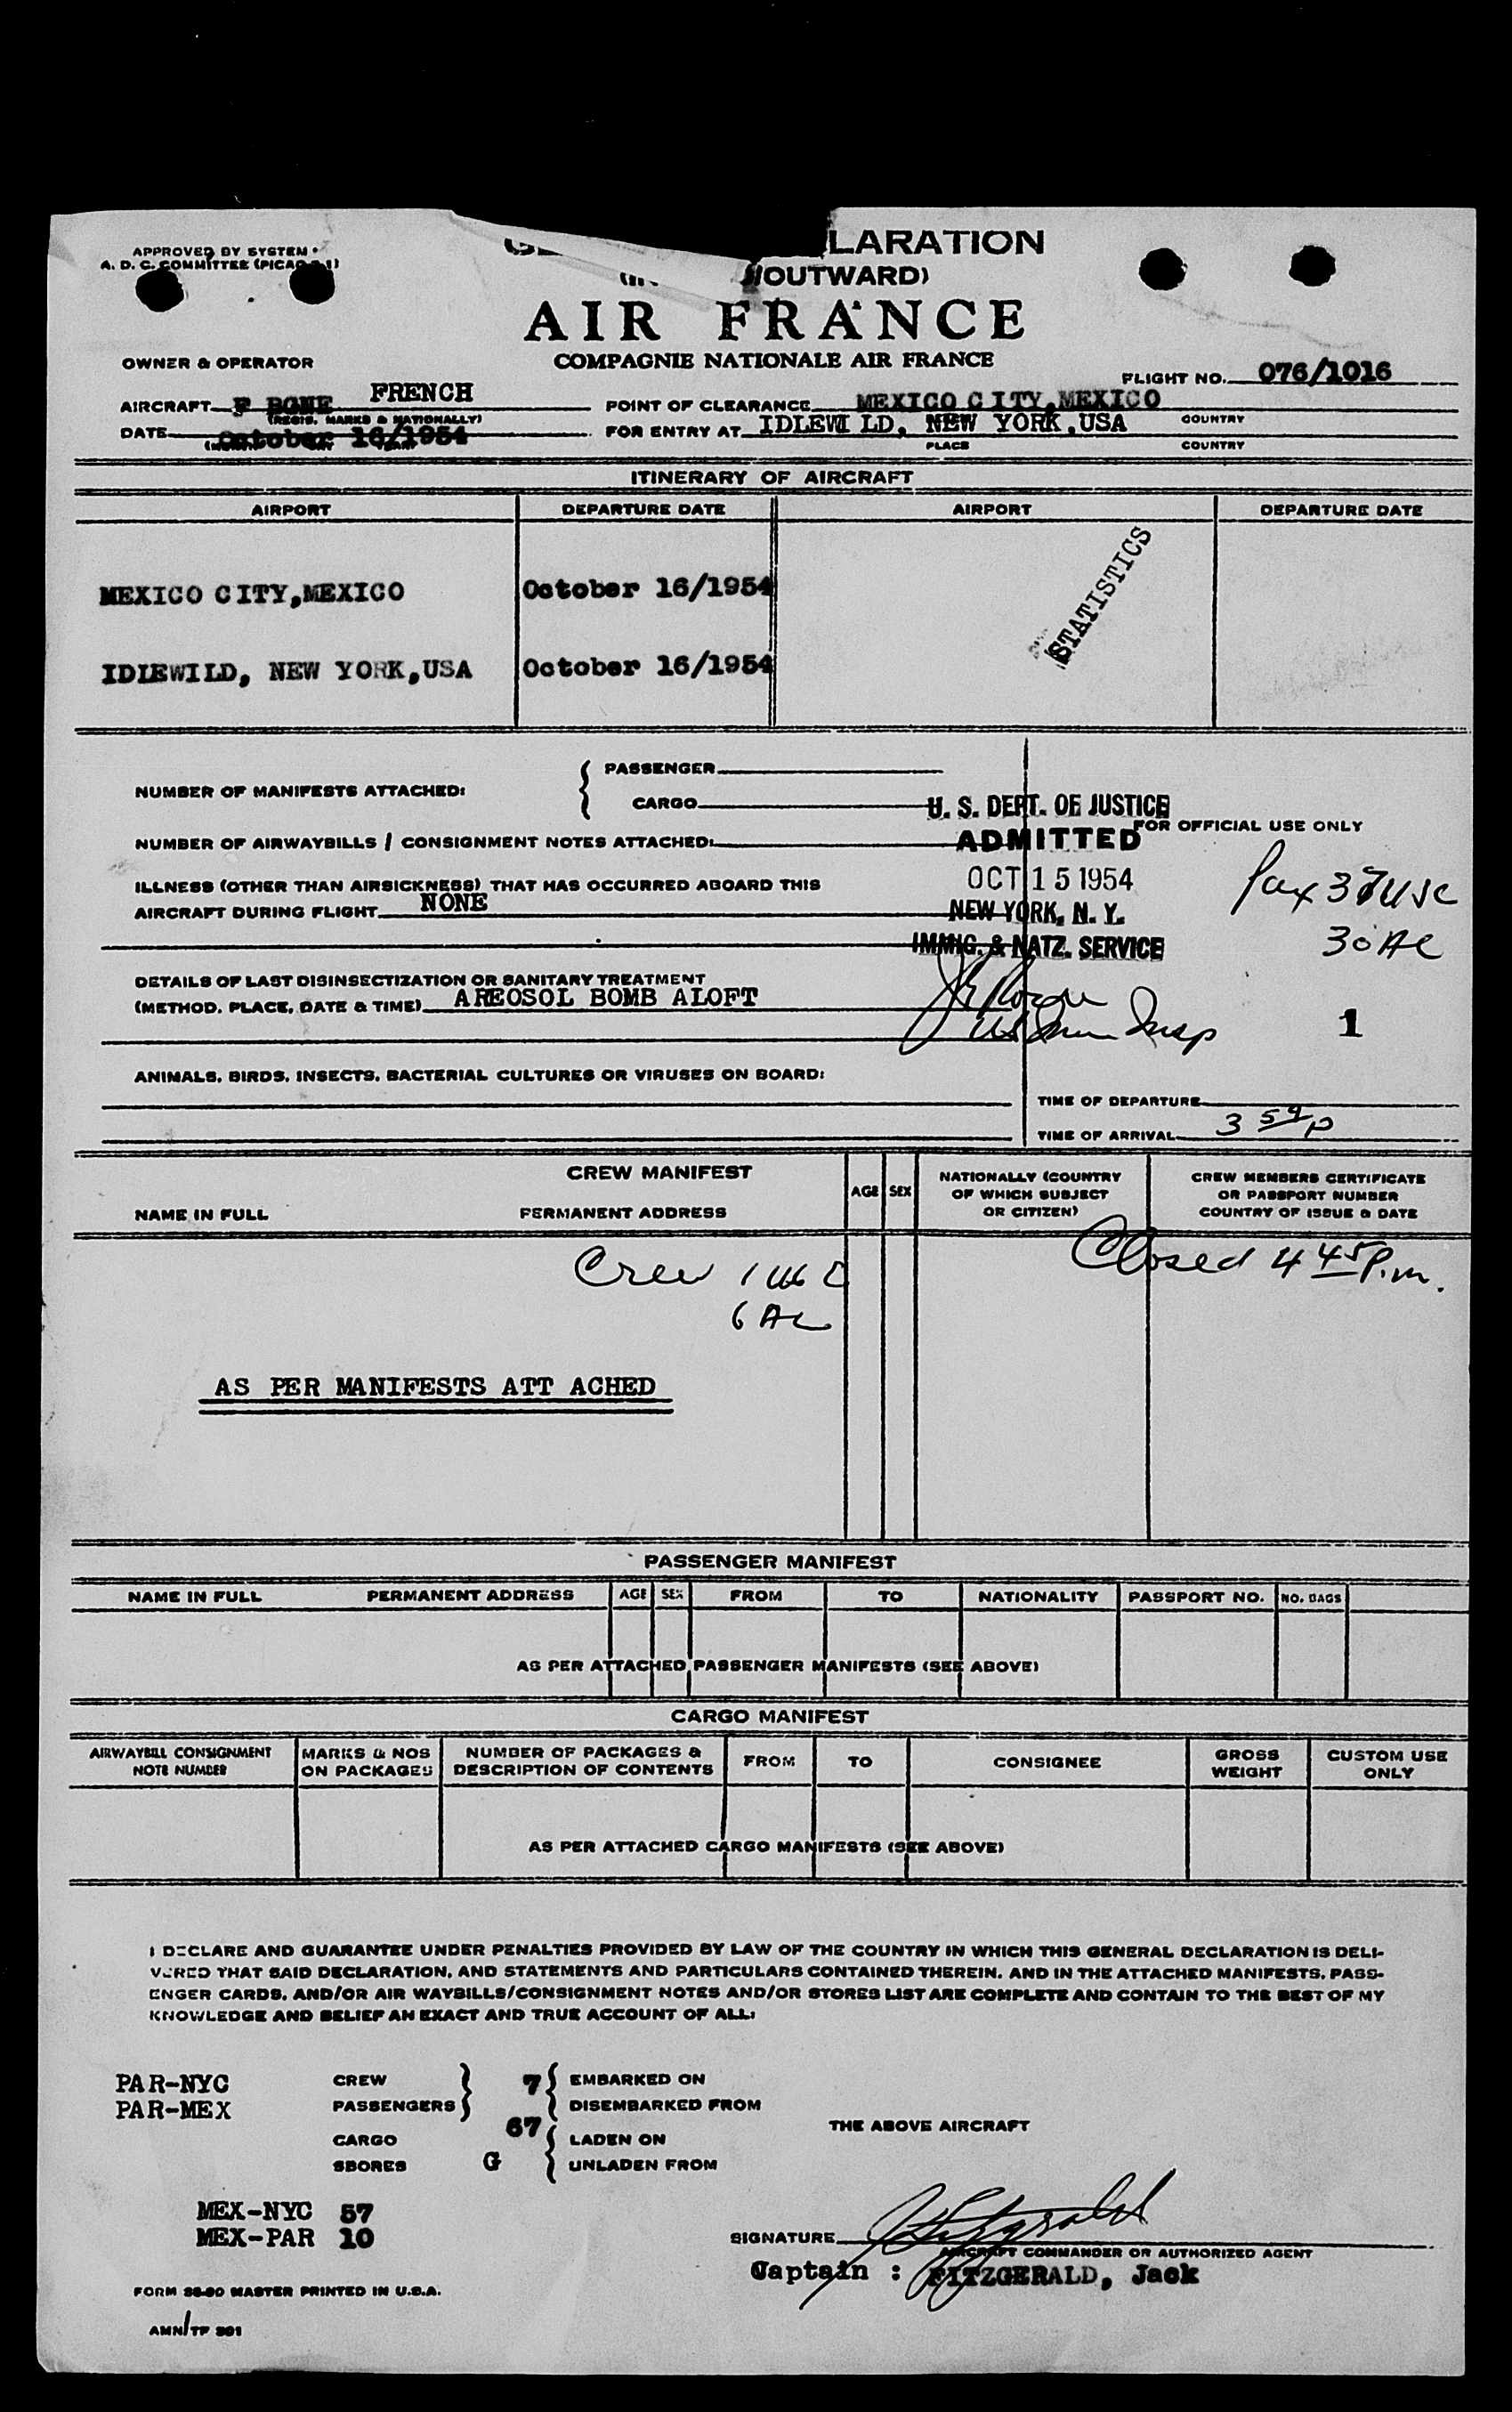 APPROVED BY SYSTEM
A. D. C. COMMITTEE (PICAO
LARATION
/OUTWARD)
AIR FRANCE
COMPAGNIE NATIONALE AIR FRANCE
OWNER & OPERATOR
FLIGHT NO. 076/1016
AIRCRAFT F BGNE FRENCH
(REGIS. MARKS & NATIONALLY)
POINT OF CLEARANCE MEXICO CITY,MEXICO
COUNTRY
DATE October 16/1954
FOR ENTRY AT IDLEWI LD, NEW YORK,USA
PLACE COUNTRY
ITINERARY OF AIRCRAFT
AIRPORT DEPARTURE DATE AIRPORT DEPARTURE DATE
MEXICO CITY,MEXICO October 16/1954
STATISTICS
IDLEWILD, NEW YORK,USA October 16/1954
NUMBER OF MANIFESTS ATTACHED: { PASSENGER
CARGO
U. S. DEPT. OF JUSTICE
FOR OFFICIAL USE ONLY
NUMBER OF AIRWAYBILLS / CONSIGNMENT NOTES ATTACHED:
ADMITTED
OCT 15 1954
NEW YORK, N. Y.
IMMIG. & NATZ. SERVICE
Pax 37 USC
30 AC
ILLNESS (OTHER THAN AIRSICKNESS) THAT HAS OCCURRED ABOARD THIS
AIRCRAFT DURING FLIGHT NONE
DETAILS OF LAST DISINSECTIZATION OR SANITARY TREATMENT
(METHOD, PLACE, DATE & TIME) AREOSOL BOMB ALOFT
US Imm Insp
1
ANIMALS, BIRDS, INSECTS, BACTERIAL CULTURES OR VIRUSES ON BOARD:
TIME OF DEPARTURE
TIME OF ARRIVAL 3 59 p
CREW MANIFEST
NAME IN FULL PERMANENT ADDRESS AGE SEX
NATIONALLY (COUNTRY
OF WHICH SUBJECT
OR CITIZEN)
CREW MEMBERS CERTIFICATE
OR PASSPORT NUMBER
COUNTRY OF ISSUE & DATE
Closed 4 45 P.m.
Crew 1 USC
6 AC
AS PER MANIFESTS ATT ACHED
PASSENGER MANIFEST
NAME IN FULL PERMANENT ADDRESS AGE SEX FROM TO NATIONALITY PASSPORT NO. NO. BAGS
AS PER ATTACHED PASSENGER MANIFESTS (SEE ABOVE)
CARGO MANIFEST
AIRWAYBILL CONSIGNMENT
NOTE NUMBER
MARKS & NOS
ON PACKAGES
NUMBER OF PACKAGES &
DESCRIPTION OF CONTENTS
FROM TO CONSIGNEE
GROSS
WEIGHT
CUSTOM USE
ONLY
AS PER ATTACHED CARGO MANIFESTS (SEE ABOVE)
I DECLARE AND GUARANTEE UNDER PENALTIES PROVIDED BY LAW OF THE COUNTRY IN WHICH THIS GENERAL DECLARATION IS DELI-
VERED THAT SAID DECLARATION, AND STATEMENTS AND PARTICULARS CONTAINED THEREIN, AND IN THE ATTACHED MANIFESTS, PASS-
ENGER CARDS, AND/OR AIR WAYBILLS/CONSIGNMENT NOTES AND/OR STORES LIST ARE COMPLETE AND CONTAIN TO THE BEST OF MY
KNOWLEDGE AND BELIEF AN EXACT AND TRUE ACCOUNT OF ALL:
PAR-NYC CREW } 7 { EMBARKED ON
PAR-MEX PASSENGERS DISEMBARKED FROM
67
THE ABOVE AIRCRAFT
CARGO { LADEN ON
SBORES G UNLADEN FROM
MEX-NYC 57
MEX-PAR 10
SIGNATURE Fitzgerald
AIRCRAFT COMMANDER OR AUTHORIZED AGENT
Captain : FITZGERALD, Jack
FORM 28-90 MASTER PRINTED IN U.S.A.
AMN/TF 301